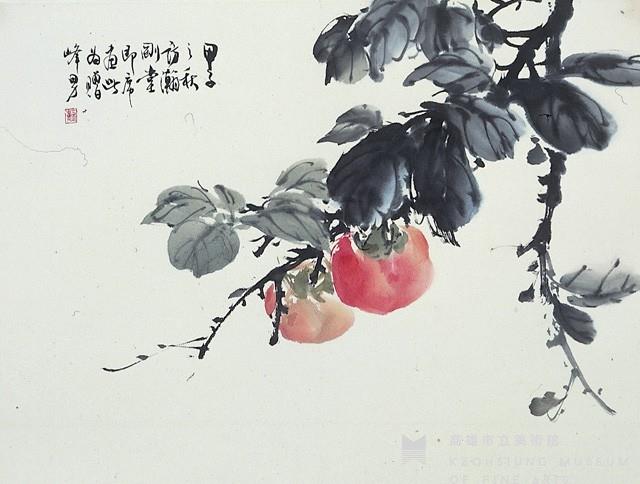 甲子
之秋
訪瀚
剛堂
即席
畫此
為贈
峰男
高雄市立美術館
KAOHSIUNG MUSEUM
OF FINE ARTS